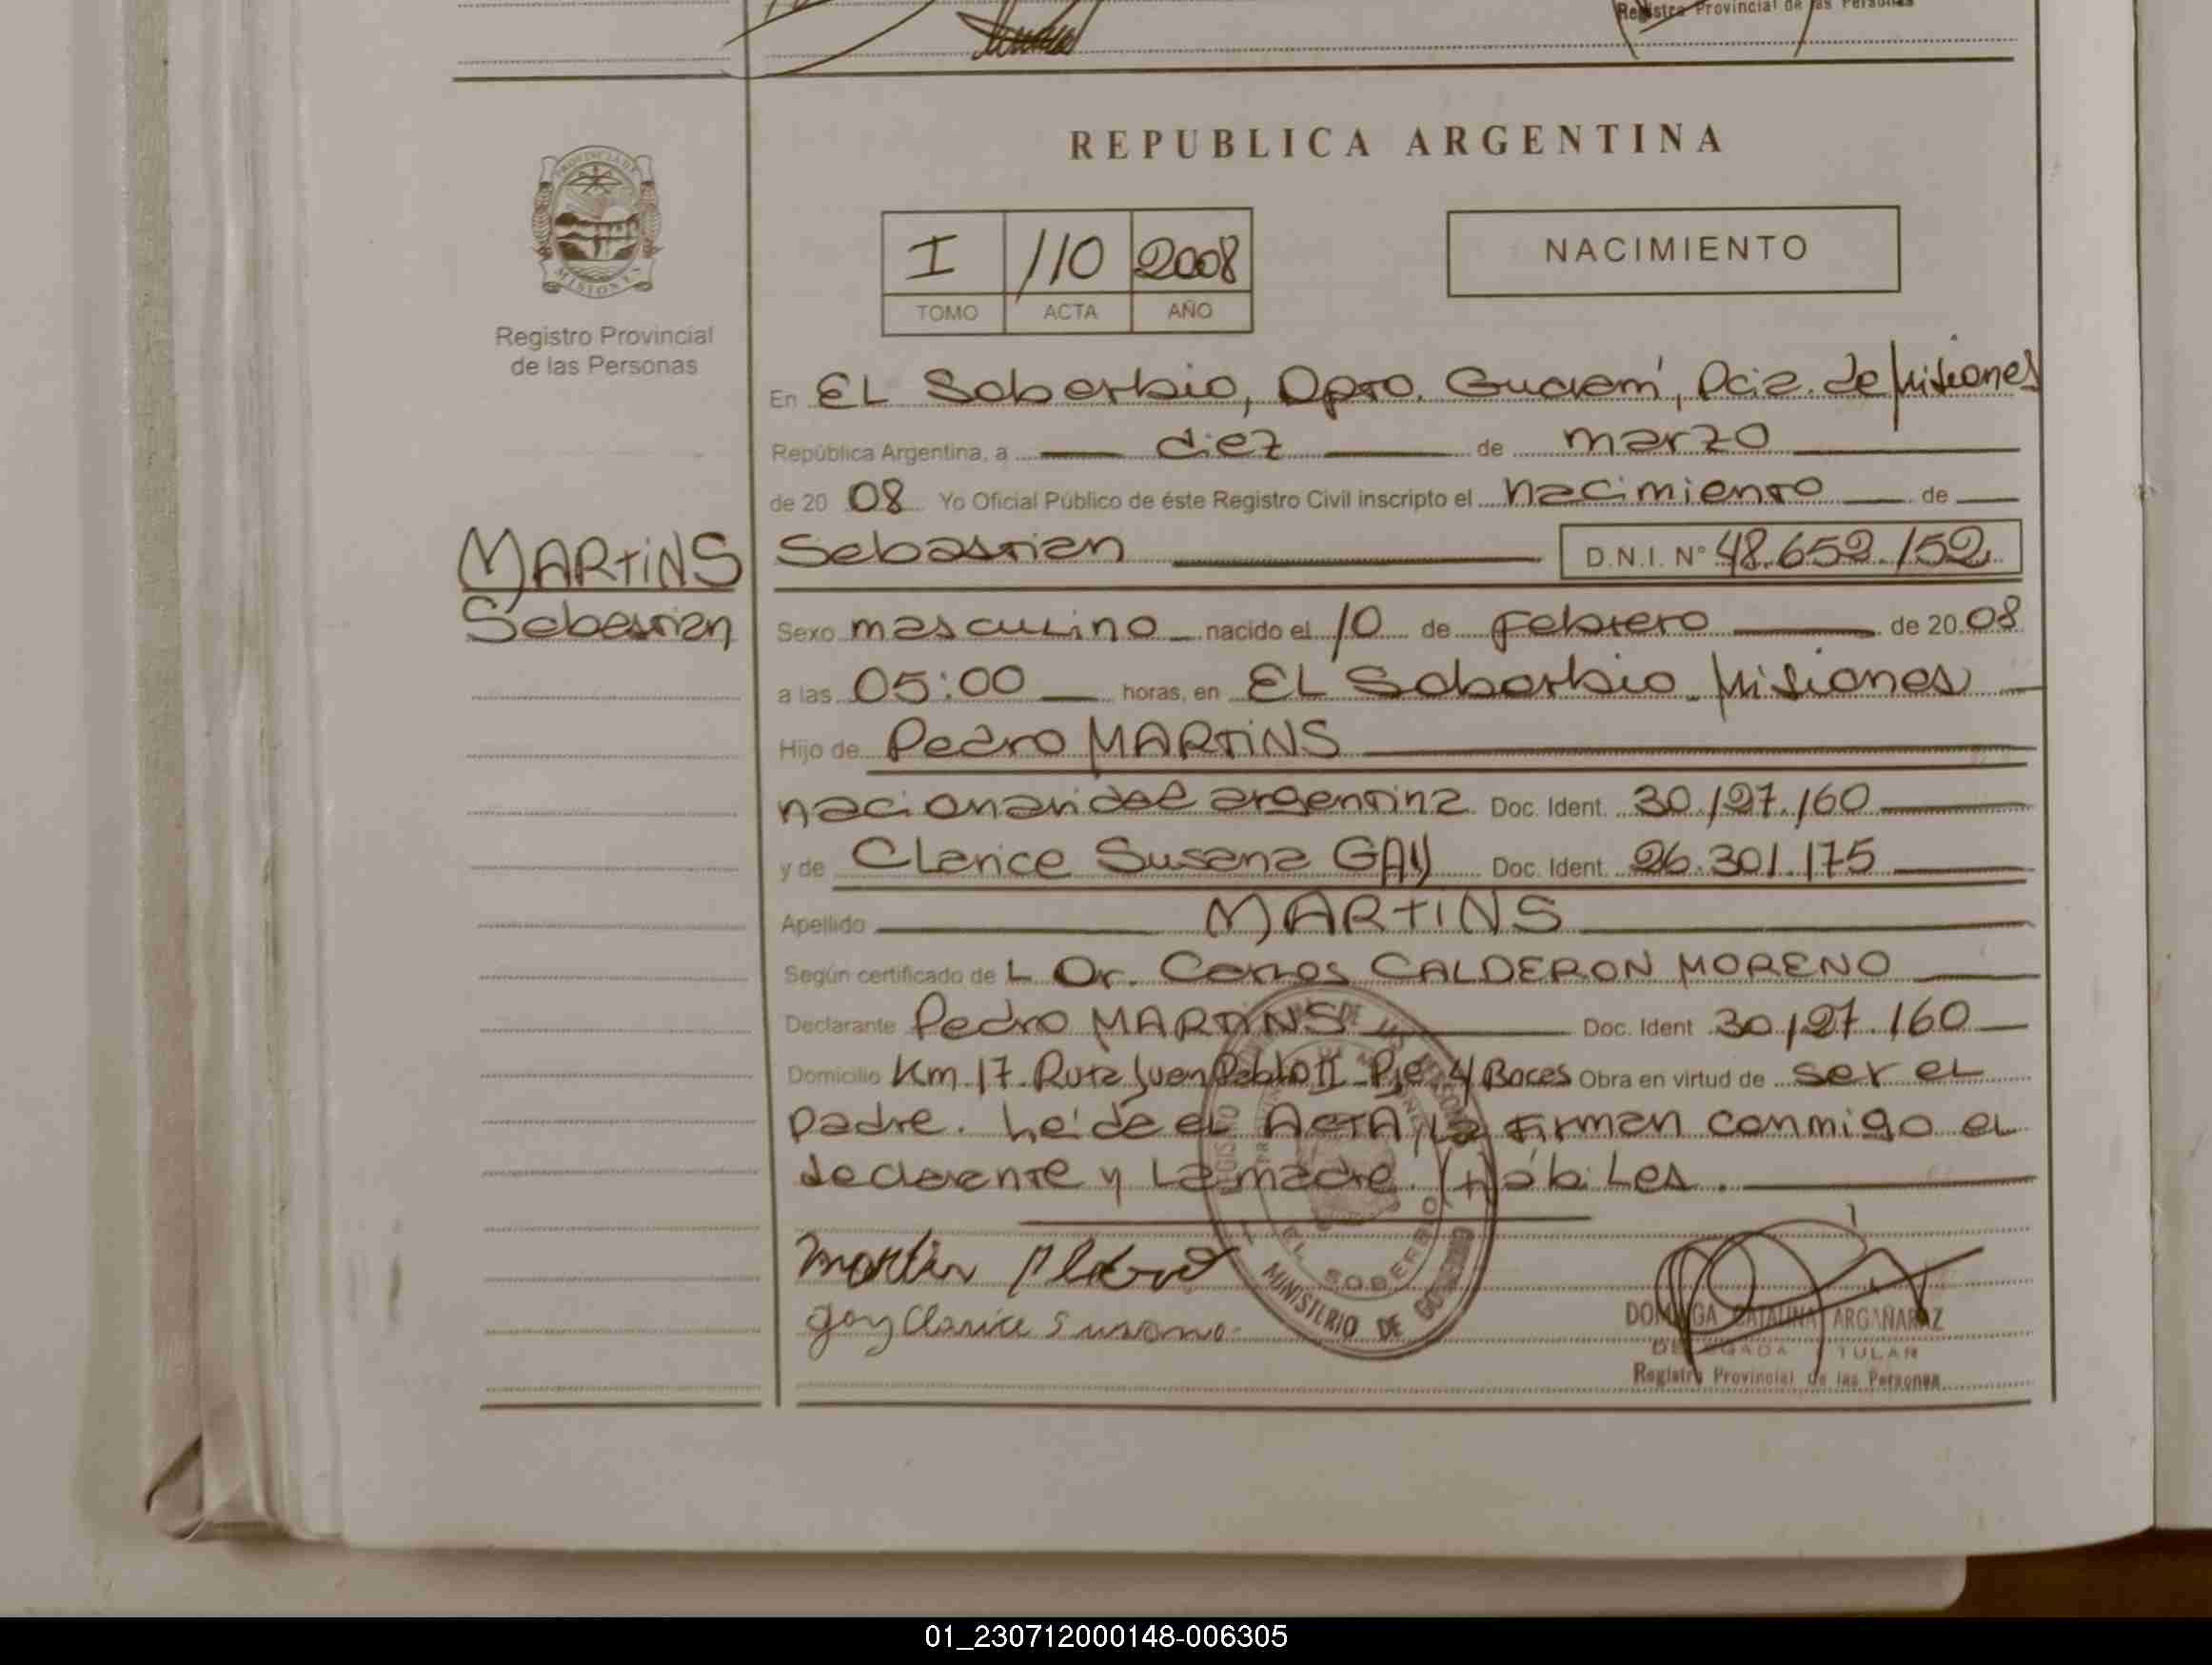 Registro Provincial de las Personas
REPUBLICA ARGENTINA
PROVINCIA DE
MISIONES
Registro Provincial
de las Personas
I 110 2008
TOMO ACTA AÑO
NACIMIENTO
En EL Soberbio, Dpto. Guaraní, Pcia. de Misiones
República Argentina, a diez de marzo
de 20 08 Yo Oficial Público de éste Registro Civil inscripto el nacimiento de
MARTINS
Sebastian
Sebastian D.N.I. N° 48.652.152
Sexo masculino nacido el 10 de febrero de 20 08
a las 05:00 horas, en EL Soberbio - Misiones
Hijo de Pedro MARTINS
nacionalidad argentina Doc. Ident. 30.127.160
y de Clarice Susana GAY Doc. Ident. 26.301.175
Apellido MARTINS
Según certificado de L Dr. Carlos CALDERON MORENO
Declarante Pedro MARTINS Doc. Ident 30.127.160
Domicilio Km 17 - Ruta Juan Pablo II - Pje 4 Bocas Obra en virtud de ser el
padre. Leída el ACTA, la firman conmigo el
declarante y la madre. (H)ábiles.
Martin
Gay Clarice Susana
EL SOBERBIO
MINISTERIO DE GOBIERNO
DOMINGA CATALINA ARGAÑARAZ
DELEGADA TITULAR
Registro Provincial de las Personas
01_230712000148-006305